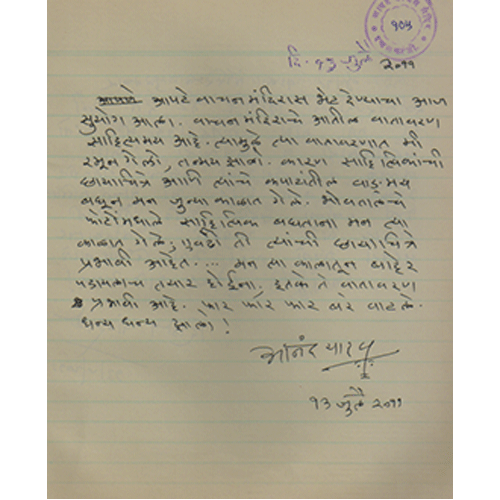 १०५
दि. १३ जुलै २०११
आपटे वाचन मंदिरास भेट देण्याचा आज
सुयोग आला. वाचन मंदिराचे आतील वातावरण
साहित्यमय आहे. त्यामुळे त्या वातावरणात मी
रमून गेलो, तन्मय झालो. कारण साहित्यिकांची
छायाचित्रे आणि त्यांचे कपाटांतील वाङ्मय
बघून मन जुन्या काळात गेले. भोवतालचे
फोटोंमधले साहित्यिक बघताना मन त्या
काळात गेले; एवढी ती त्यांची छायाचित्रे
प्रभावी आहेत.... मन त्या काळातून बाहेर
पडायलाच तयार होईना. इतके ते वातावरण
प्रभावी आहे. फार फार फार बरे वाटले.
धन्य धन्य झालो!
आनंद यादव
१३ जुलै २०११